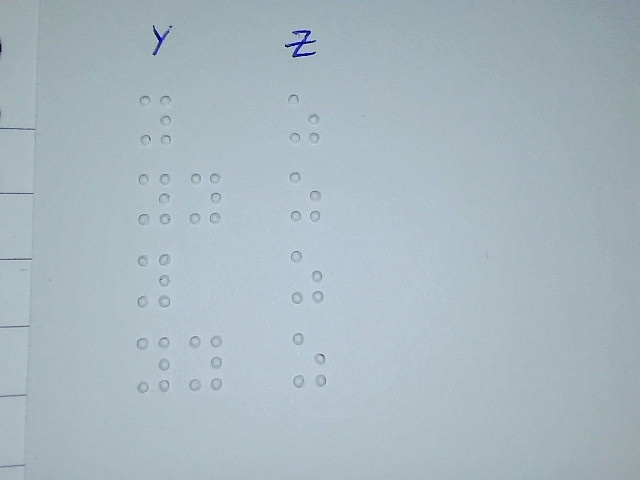 Y Z
⠽ ⠵
⠽⠽ ⠵
⠽ ⠵
⠽⠽ ⠵